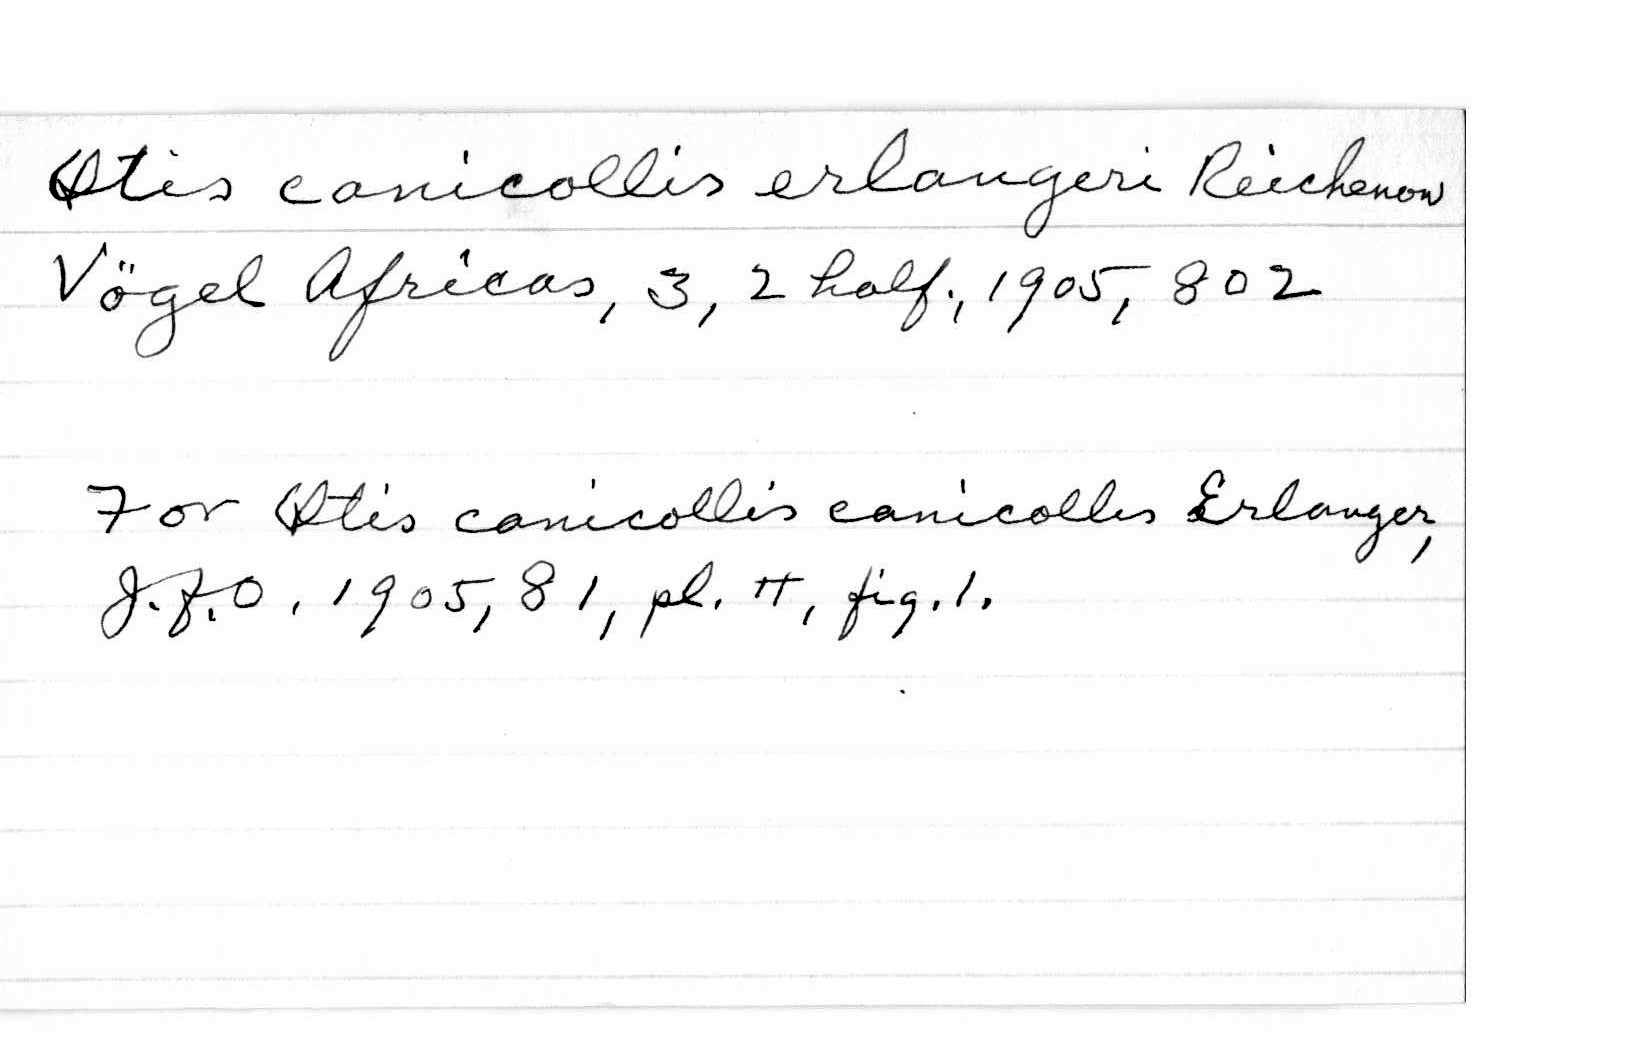 Otis canicollis erlangeri Reichenow
Vögel Africas, 3, 2 half., 1905, 802
For Otis canicollis canicollis Erlanger,
J.f.O. 1905, 81, pl. II, fig. 1.